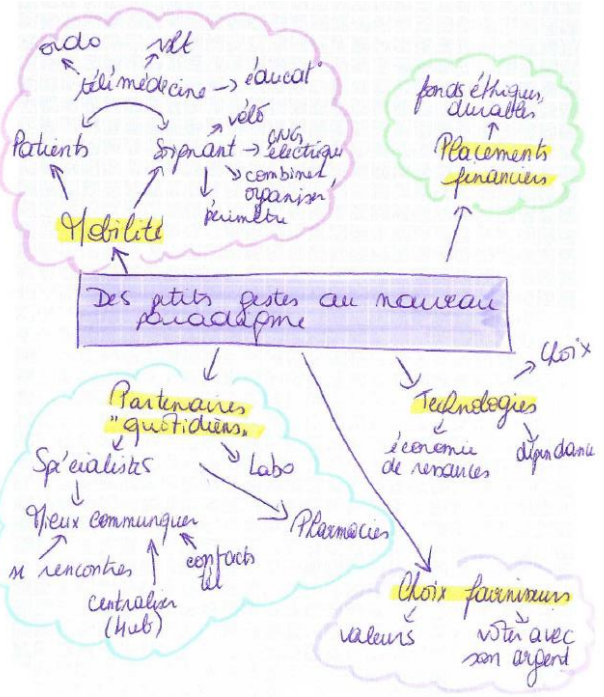 ordo
rslt
télémédecine → éducat°
vélo
Patients
Soignant → GNG, électrique
combiner,
organiser,
périmètre
Mobilité
fonds éthiques,
durables
Placements
financiers
Des petits gestes au nouveau
paradigme
Partenaires
"quotidiens"
Spécialistes
Labo
Mieux communiquer
Pharmacies
se rencontrer
contacts
tel
centraliser
(Hub)
Choix
Technologies
économie
de ressources
dépendance
Choix fournisseurs
valeurs
voter avec
son argent